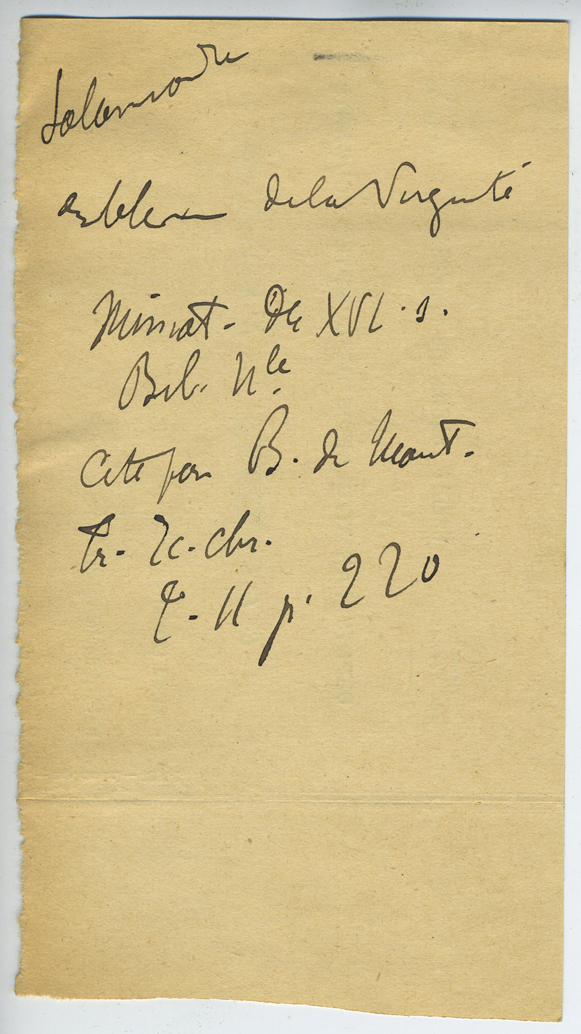 Salamandre
emblème de la Virginité
Miniat. de XVI. s.
Bib. Nle
Cité par B. de Mont.
Tr. Ic. chr.
T. II p. 220